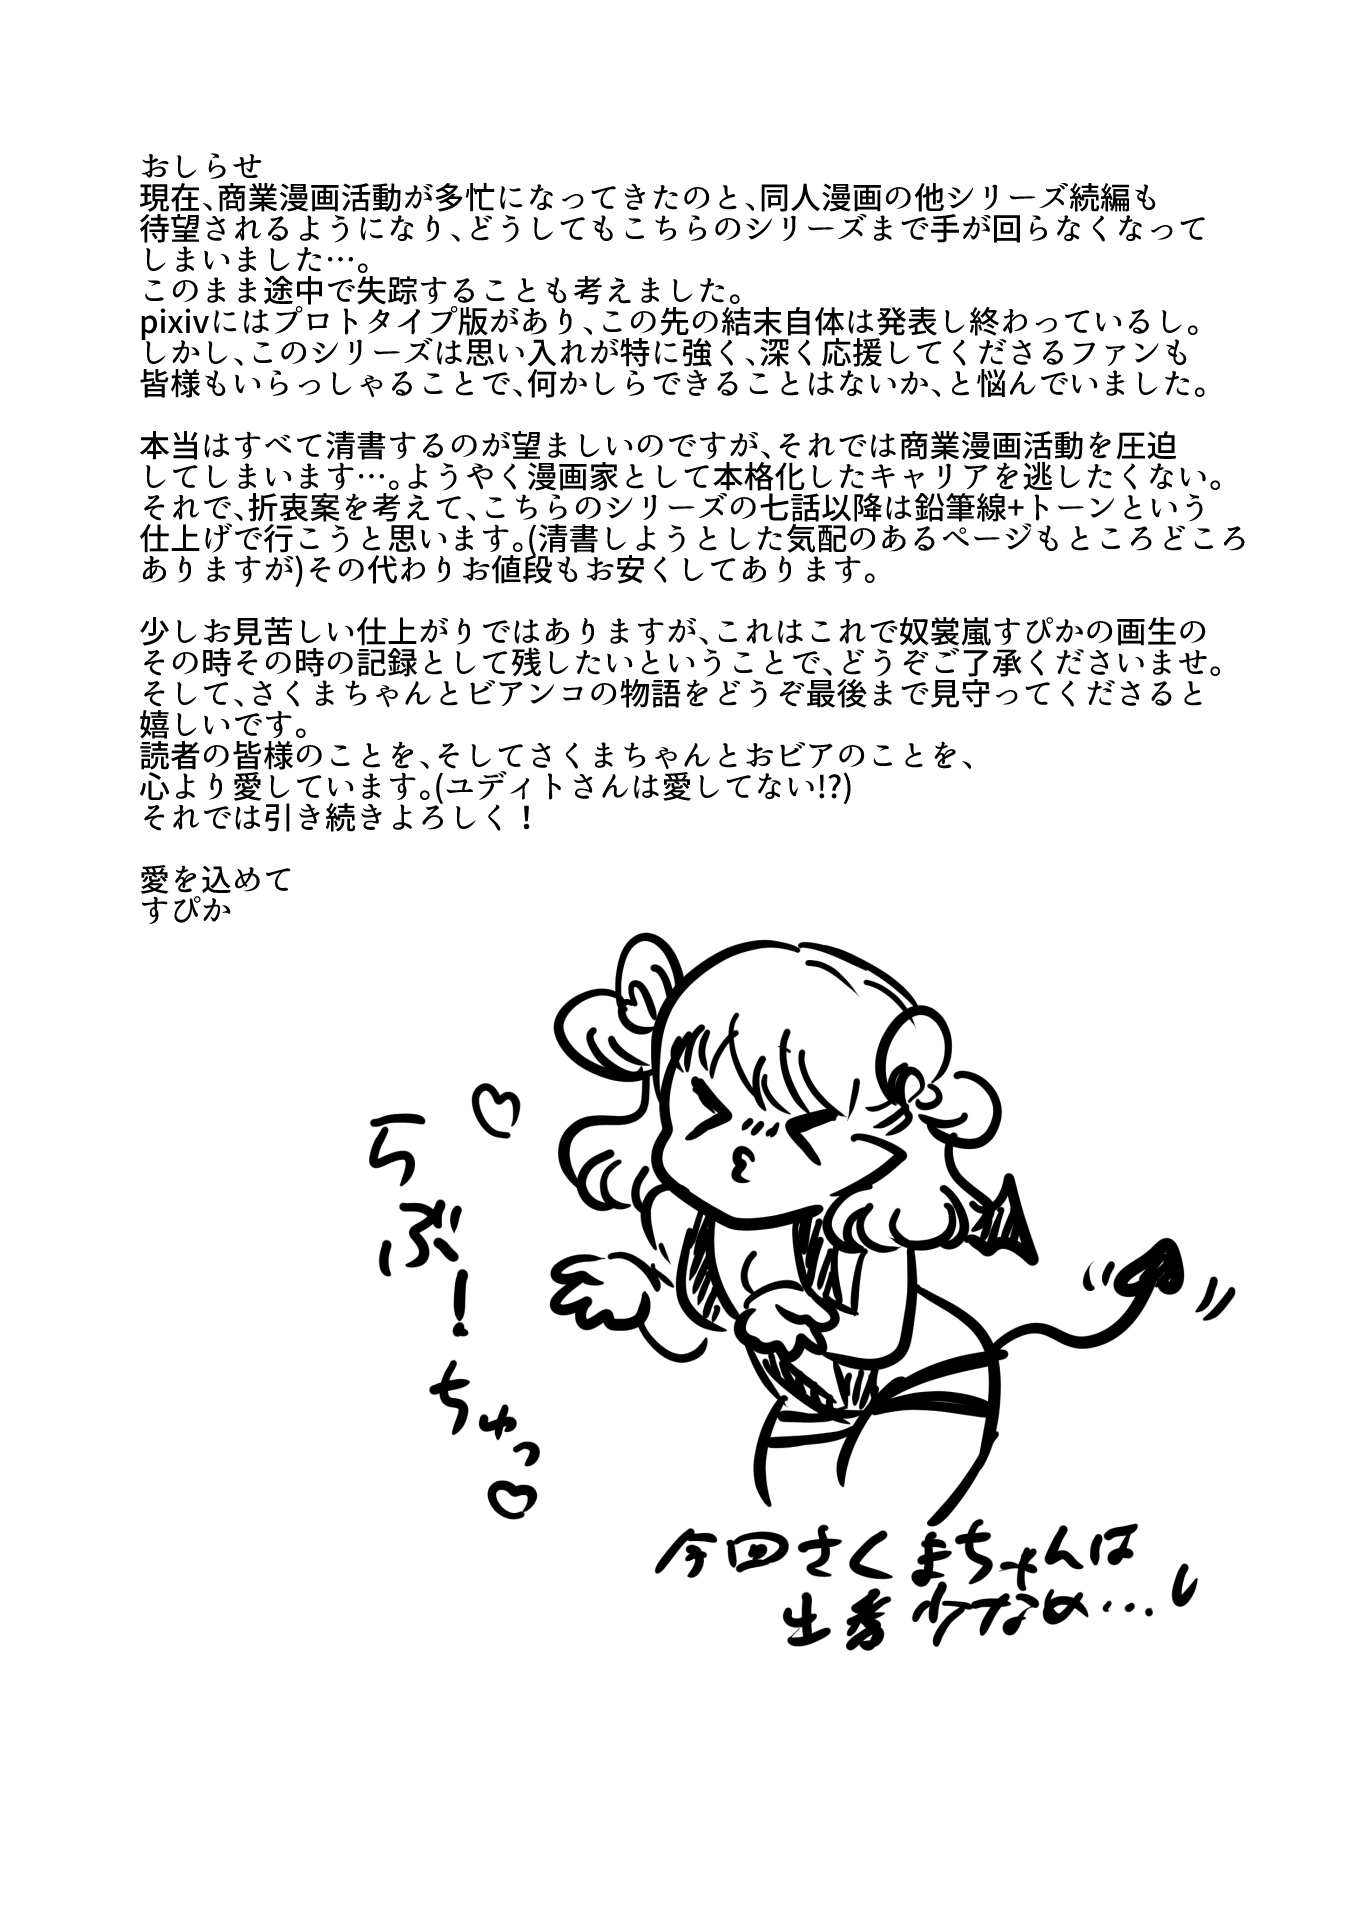 おしらせ
現在、商業漫画活動が多忙になってきたのと、同人漫画の他シリーズ続編も
待望されるようになり、どうしてもこちらのシリーズまで手が回らなくなって
しまいました…。
このまま途中で失踪することも考えました。
pixivにはプロトタイプ版があり、この先の結末自体は発表し終わっているし。
しかし、このシリーズは思い入れが特に強く、深く応援してくださるファンも
皆様もいらっしゃることで、何かしらできることはないか、と悩んでいました。
本当はすべて清書するのが望ましいのですが、それでは商業漫画活動を圧迫
してしまいます…。ようやく漫画家として本格化したキャリアを逃したくない。
それで、折衷案を考えて、こちらのシリーズの七話以降は鉛筆線+トーンという
仕上げで行こうと思います。(清書しようとした気配のあるページもところどころ
ありますが)その代わりお値段もお安くしてあります。
少しお見苦しい仕上がりではありますが、これはこれで奴裳嵐すぴかの画生の
その時その時の記録として残したいということで、どうぞご了承くださいませ。
そして、さくまちゃんとビアンコの物語をどうぞ最後まで見守ってくださると
嬉しいです。
読者の皆様のことを、そしてさくまちゃんとおビアのことを、
心より愛しています。(ユディトさんは愛してない!?)
それでは引き続きよろしく！
愛を込めて
すぴか
らぶ!
ちゅっ♡
今回さくまちゃんは
出番少なめ…